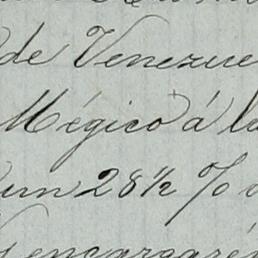 de Venezue
Mégico á la
un 28½ %
encargaré